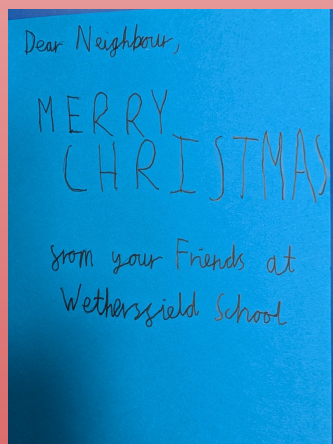 Dear Neighbour,
MERRY
CHRISTMAS
from your Friends at
Wethersfield School